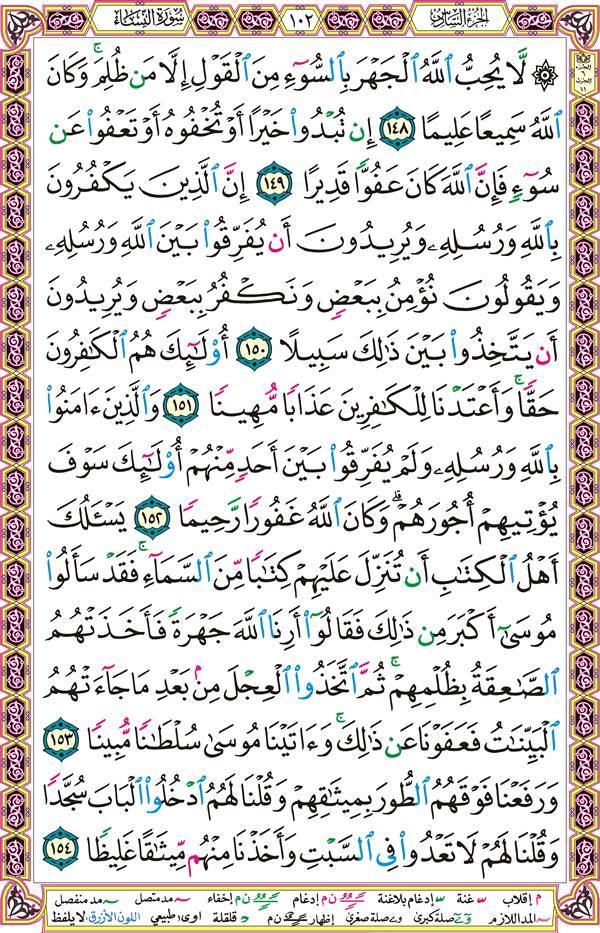 الجزء السادس
١٠٢
سورة النساء
۞ لَّا يُحِبُّ ٱللَّهُ ٱلْجَهْرَ بِٱلسُّوٓءِ مِنَ ٱلْقَوْلِ إِلَّا مَن ظُلِمَ ۚ وَكَانَ
ٱللَّهُ سَمِيعًا عَلِيمًا ١٤٨ إِن تُبْدُوا۟ خَيْرًا أَوْ تُخْفُوهُ أَوْ تَعْفُوا۟ عَن
سُوٓءٍ فَإِنَّ ٱللَّهَ كَانَ عَفُوًّا قَدِيرًا ١٤٩ إِنَّ ٱلَّذِينَ يَكْفُرُونَ
بِٱللَّهِ وَرُسُلِهِۦ وَيُرِيدُونَ أَن يُفَرِّقُوا۟ بَيْنَ ٱللَّهِ وَرُسُلِهِۦ
وَيَقُولُونَ نُؤْمِنُ بِبَعْضٍ وَنَكْفُرُ بِبَعْضٍ وَيُرِيدُونَ
أَن يَتَّخِذُوا۟ بَيْنَ ذَٰلِكَ سَبِيلًا ١٥٠ أُو۟لَٰٓئِكَ هُمُ ٱلْكَٰفِرُونَ
حَقًّا ۚ وَأَعْتَدْنَا لِلْكَٰفِرِينَ عَذَابًا مُّهِينًا ١٥١ وَٱلَّذِينَ ءَامَنُوا۟
بِٱللَّهِ وَرُسُلِهِۦ وَلَمْ يُفَرِّقُوا۟ بَيْنَ أَحَدٍ مِّنْهُمْ أُو۟لَٰٓئِكَ سَوْفَ
يُؤْتِيهِمْ أُجُورَهُمْ ۗ وَكَانَ ٱللَّهُ غَفُورًا رَّحِيمًا ١٥٢ يَسْـَٔلُكَ
أَهْلُ ٱلْكِتَٰبِ أَن تُنَزِّلَ عَلَيْهِمْ كِتَٰبًا مِّنَ ٱلسَّمَآءِ ۚ فَقَدْ سَأَلُوا۟
مُوسَىٰٓ أَكْبَرَ مِن ذَٰلِكَ فَقَالُوٓا۟ أَرِنَا ٱللَّهَ جَهْرَةً فَأَخَذَتْهُمُ
ٱلصَّٰعِقَةُ بِظُلْمِهِمْ ۚ ثُمَّ ٱتَّخَذُوا۟ ٱلْعِجْلَ مِنۢ بَعْدِ مَا جَآءَتْهُمُ
ٱلْبَيِّنَٰتُ فَعَفَوْنَا عَن ذَٰلِكَ ۚ وَءَاتَيْنَا مُوسَىٰ سُلْطَٰنًا مُّبِينًا ١٥٣
وَرَفَعْنَا فَوْقَهُمُ ٱلطُّورَ بِمِيثَٰقِهِمْ وَقُلْنَا لَهُمُ ٱدْخُلُوا۟ ٱلْبَابَ سُجَّدًا
وَقُلْنَا لَهُمْ لَا تَعْدُوا۟ فِى ٱلسَّبْتِ وَأَخَذْنَا مِنْهُم مِّيثَٰقًا غَلِيظًا ١٥٤
م إقلاب غنة إدغام بلاغنة ن م إدغام ن م إخفاء مد متصل مد منفصل
المد اللازم صلة كبرى صلة صغرى إظهار ن م قلقلة اوى طبيعي اللون الأزرق لا يلفظ